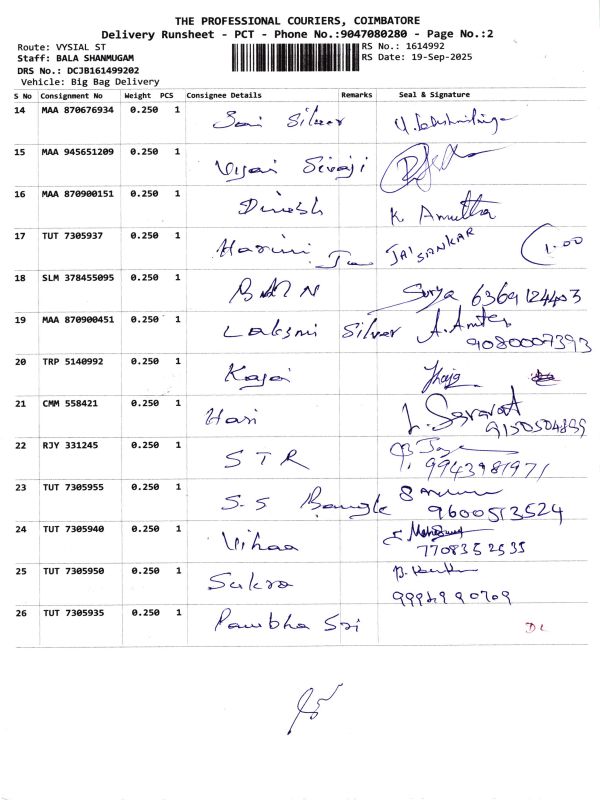 THE PROFESSIONAL COURIERS, COIMBATORE
Delivery Runsheet - PCT - Phone No.:9047080280 - Page No.:2
Route: VYSIAL ST
RS No.: 1614992
Staff: BALA SHANMUGAM
RS Date: 19-Sep-2025
DRS No.: DCJB161499202
Vehicle: Big Bag Delivery
S No Consignment No Weight PCS Consignee Details Remarks Seal & Signature
14 MAA 870676934 0.250 1 Silver
15 MAA 945651209 0.250 1 Vijai Sivaji
16 MAA 870900151 0.250 1 Dinesh K Amutha
17 TUT 7305937 0.250 1 Harini JAISANKAR 1.00
18 SLM 378455095 0.250 1 BMN Surya 6369124403
19 MAA 870900451 0.250 1 Laksmi Silver
9080007393
20 TRP 5140992 0.250 1
21 CMM 558421 0.250 1 Hari
9150504899
22 RJY 331245 0.250 1 STR
9943981971
23 TUT 7305955 0.250 1 S.S Bangle
9600513524
24 TUT 7305940 0.250 1 Vihaa
7708352535
25 TUT 7305950 0.250 1 Sukra
26 TUT 7305935 0.250 1 Sri DL